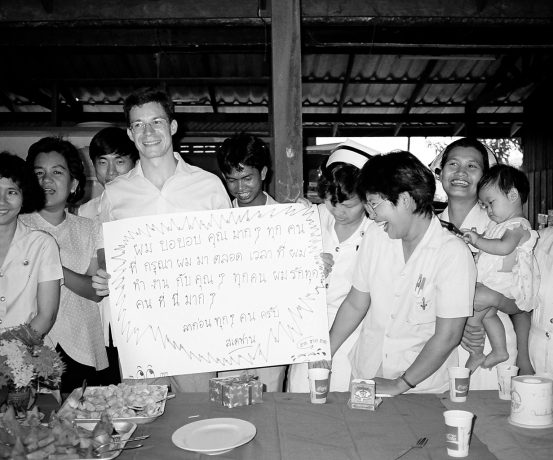 ผม ขอขอบ คุณ มาก ๆ ทุก คน
ที่ กรุณา ผม มา ตลอด เวลา ที่ ผม
ทำ งาน กับ คุณ ๆ ทุกคน ผม รัก ทุก
คน ที่ นี่ มาก ๆ
ลาก่อน ทุก ๆ คน ครับ